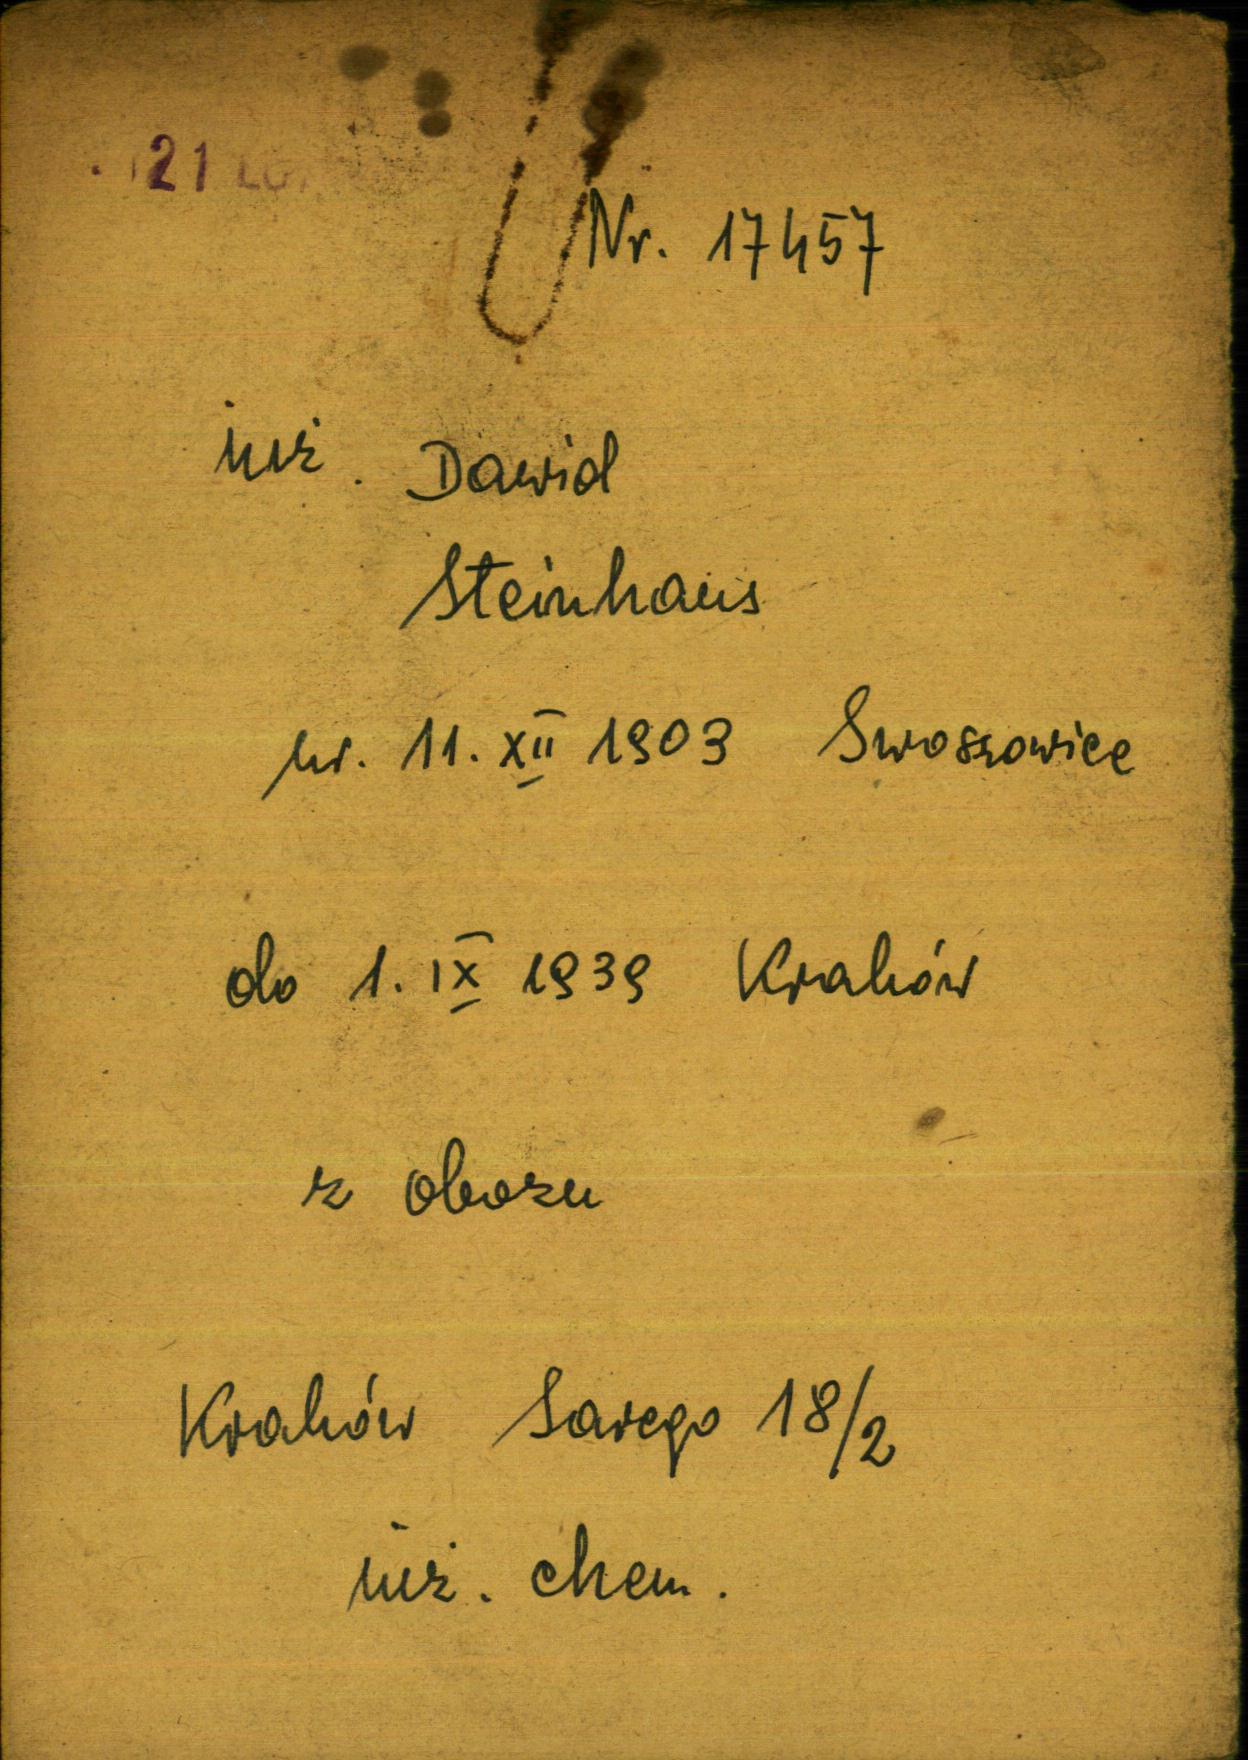 21 LUT
Nr. 17457
inż. Dawid
Steinhaus
ur. 11. XII 1903 Swoszowice
do 1. IX 1939 Kraków
z obozu
Kraków Sarego 18/2
inż. chem.